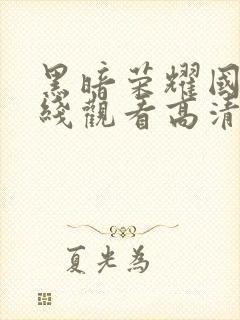 黑暗荣耀國
綫觀看高清
夏光為